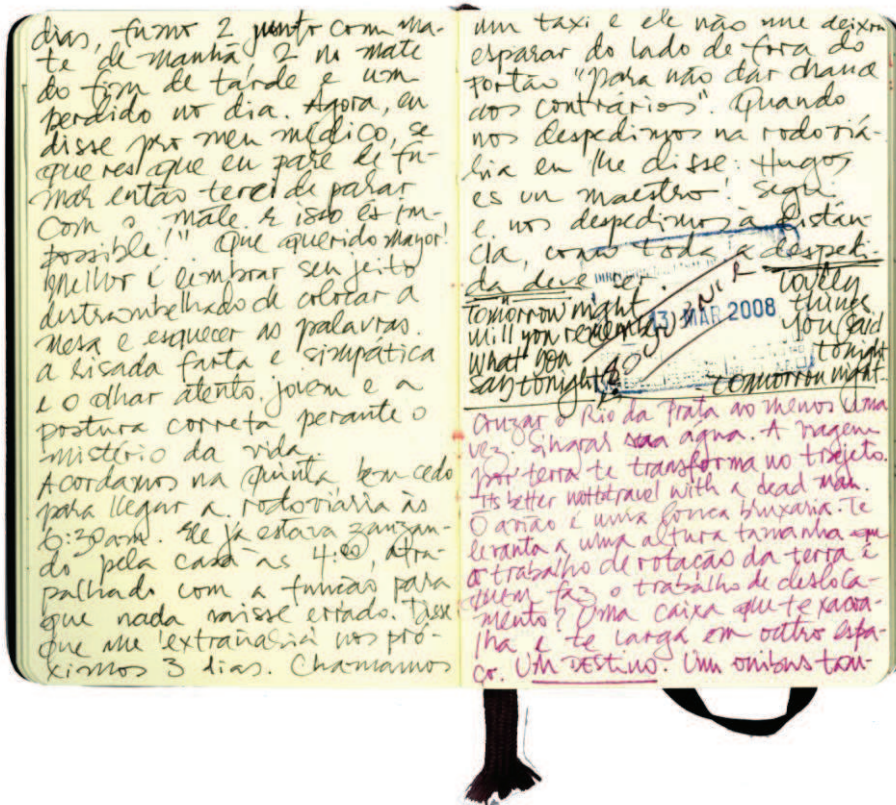 dias, fumo 2 junto com ma-
te de manhã 2 no mate
do fim de tarde e um
perdido no dia. Agora, eu
disse pro meu médico, se
queres que eu pare de fu-
mar então terei de parar
com o mate e isso és im-
possible!" Que querido mayor!
Melhor é lembrar seu jeito
destrambelhado de colocar a
mesa e esquecer as palavras.
a risada farta e simpática
e o olhar atento, jovem e a
postura correta perante o
mistério da vida.
Acordamos na quinta bem cedo
para llegar a rodoviária às
6:30am. Ele já estava zanzan-
do pela casa às 4:00, atra-
palhado com a função para
que nada saisse errado. Disse
que me extrañaria nos pró-
ximos 3 dias. Chamamos
um taxi e ele não me deixou
esparar do lado de fora do
portão "para não dar chance
aos contrários". Quando
nos despedimos na rodoviá-
ria eu lhe disse: Hugo,
es un maestro!
e nos despedimos à distân-
cia, como toda a despedi-
da deve ser.
tomorrow night
will you remember
what you
say tonight
SOUVENIR
13 MAR 2008
lovely
things
you said
tonight
tomorrow night
Cruzar o Rio da Prata ao menos uma
vez. Singras sua água. A viagem
por terra te transforma no trajeto.
Its better not travel with a dead man.
O avião é uma louca bruxaria. Te
levanta a uma altura tamanha que
o trabalho de rotação da terra é
quem faz o trabalho de desloca-
mento? Uma caixa que te xacoa-
lha e te larga em outro espa-
ço. UM DESTINO. Um onibus tom-